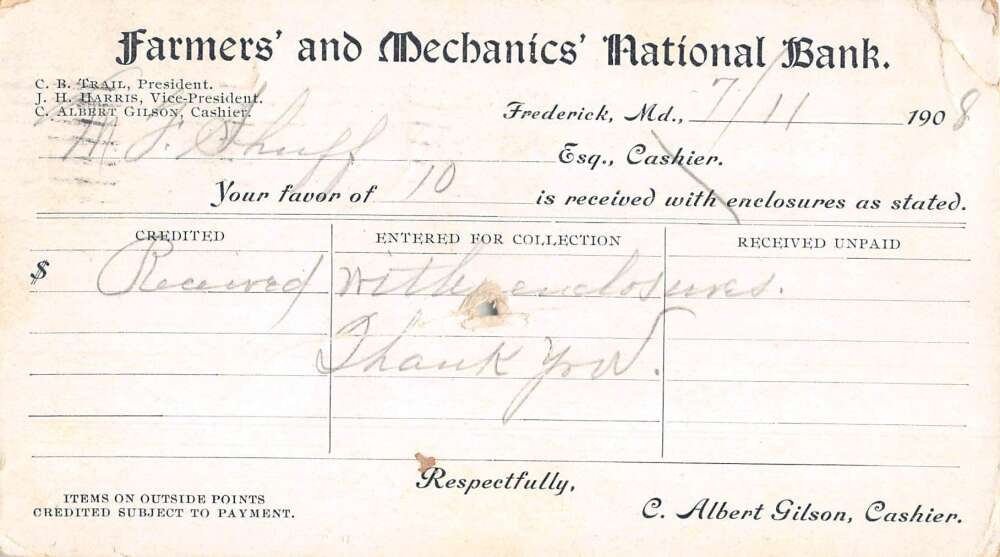 Farmers' and Mechanics' National Bank.
C. B. TRAIL, President.
J. H. HARRIS, Vice-President.
C. ALBERT GILSON, Cashier.
Frederick, Md., 7/11 1908
M. F. Shuff Esq., Cashier.
Your favor of 10 is received with enclosures as stated.
CREDITED ENTERED FOR COLLECTION RECEIVED UNPAID
$ Received with enclosures.
Thank You.
Respectfully,
ITEMS ON OUTSIDE POINTS
CREDITED SUBJECT TO PAYMENT.
C. Albert Gilson, Cashier.